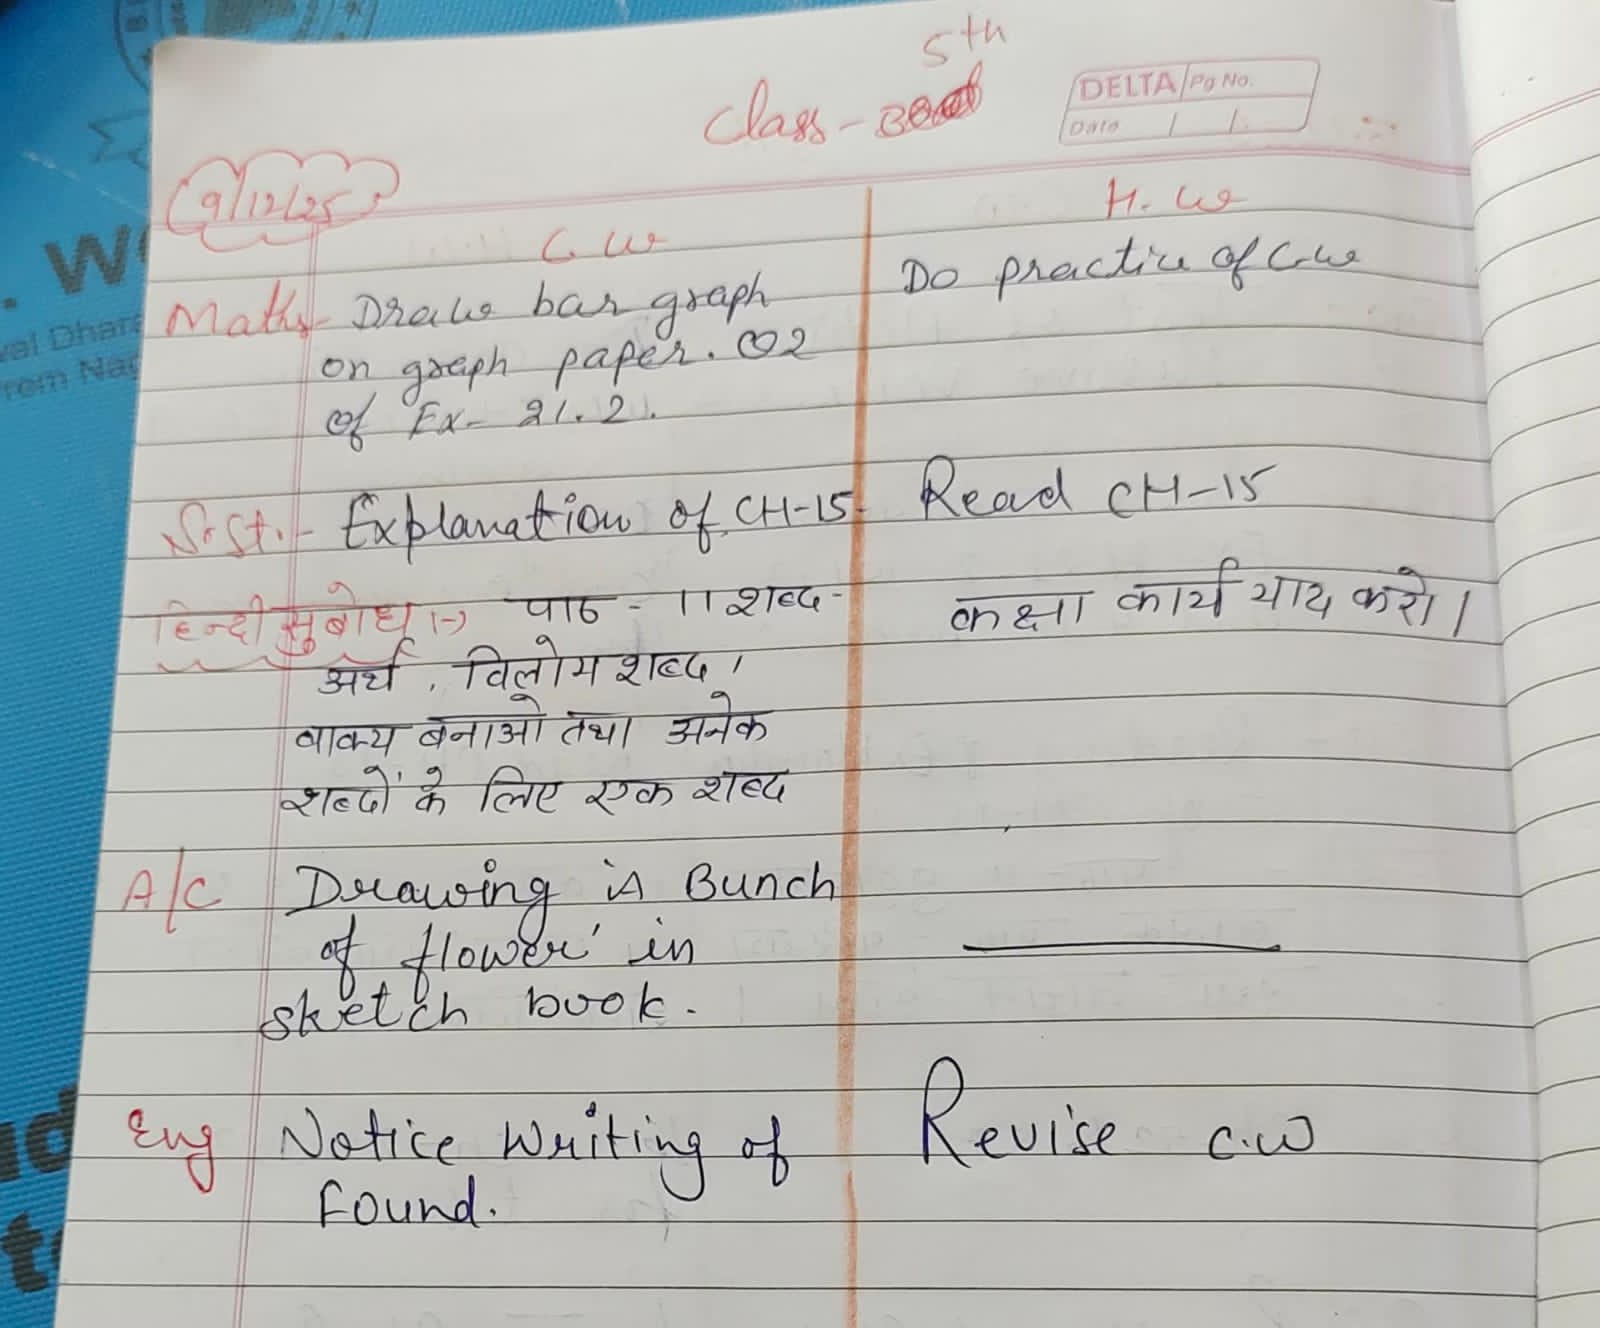 5th
Class -
DELTA Pg No.
Date / /
9/12/25
C.W
H.W
Maths - Draw bar graph
on graph paper. Q2
of Ex- 21.2.
Do practice of C.w
S.St. - Explanation of CH-15.
Read CH-15
हिन्दी सुबोध :-> पाठ - 11 शब्द -
अर्थ, विलोम शब्द,
वाक्य बनाओ तथा अनेक
शब्दों के लिए एक शब्द
कक्षा कार्य याद करो।
A/C Drawing is Bunch
of flower' in
sketch book.
Eng Notice Writing of
Found.
Revise C.W